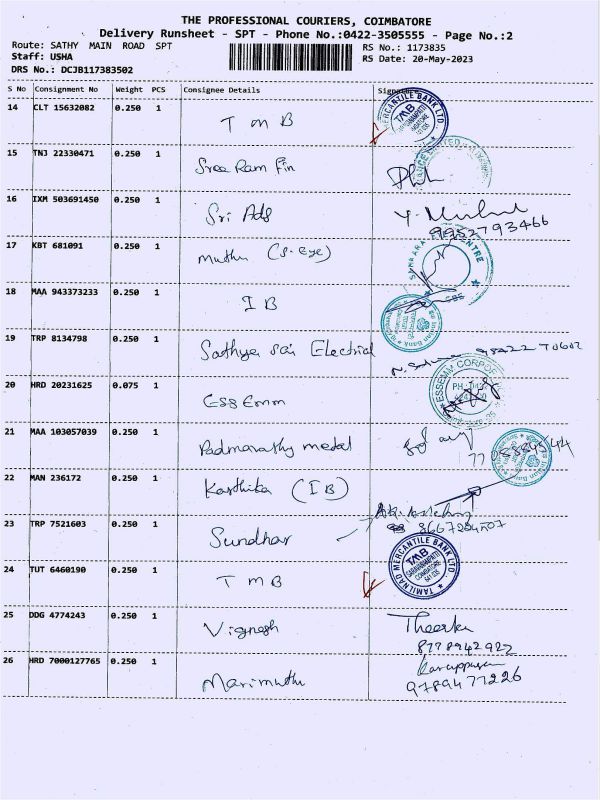 THE PROFESSIONAL COURIERS, COIMBATORE
Delivery Runsheet - SPT - Phone No.:0422-3505555 - Page No.:2
Route: SATHY MAIN ROAD SPT
RS No.: 1173835
Staff: USHA
RS Date: 20-May-2023
DRS No.: DCJB117383502
S No Consignment No Weight PCS Consignee Details Signature
14 CLT 15632082 0.250 1 T m B
MERCANTILE BANK LTD. TMB
15 TNJ 22330471 0.250 1 Sree Ram Fin
16 IXM 503691450 0.250 1 Sri Ads
9952793466
17 KBT 681091 0.250 1 Muthu (S-Eye)
18 MAA 943373233 0.250 1 I B
19 TRP 8134798 0.250 1 Sathya Sai Electrical
20 HRD 20231625 0.075 1 Ess Emm
ESSEMM CORPOR
21 MAA 103057039 0.250 1 Padmavathy metal
22 MAN 236172 0.250 1 Karthika (I B)
23 TRP 7521603 0.250 1 Sundhar
8667284507
24 TUT 6460190 0.250 1 T M B
TAMILNAD MERCANTILE BANK LTD. TMB SARAVANAMPATTI COIMBATORE
25 DDG 4774243 0.250 1 Vignesh
8778942922
26 HRD 7000127765 0.250 1 Marimuthu
Karuppasam
9789477226